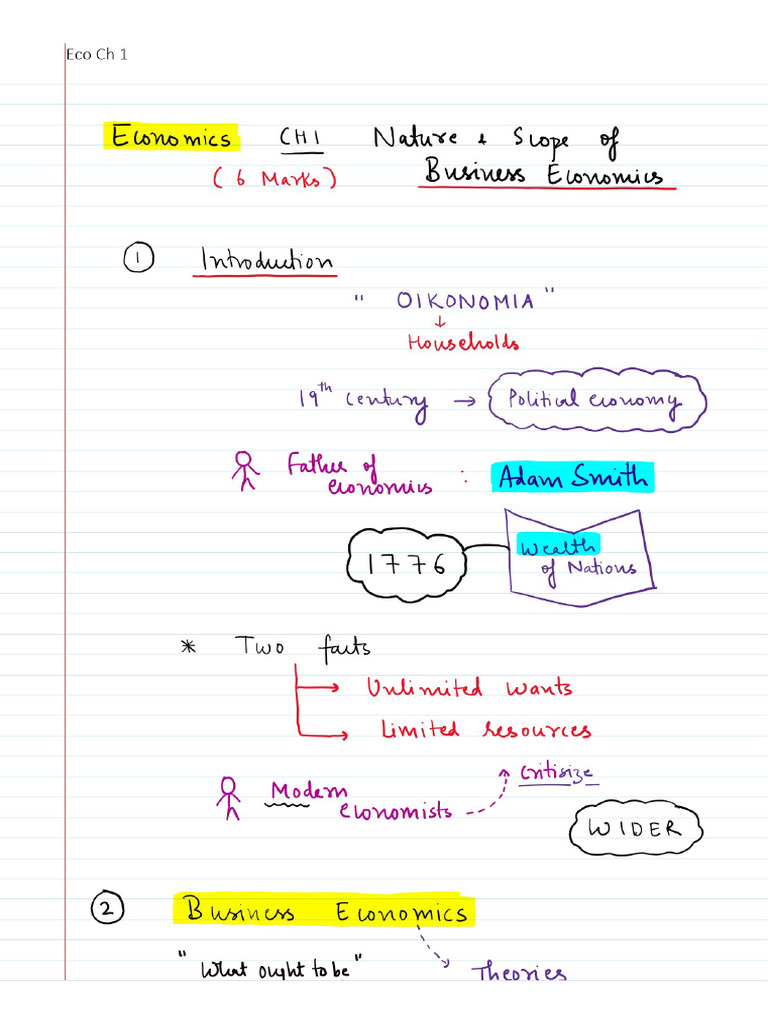 Eco Ch 1
Economics CH1 Nature & Scope of
(6 Marks) Business Economics
1 Introduction
" OIKONOMIA "
↓
Households
19th century → Political economy
Father of
economics : Adam Smith
1776 Wealth
of Nations
* Two facts
→ Unlimited wants
→ Limited resources
Critisize
Modern
economists
WIDER
2 Business Economics
"What ought to be" Theories